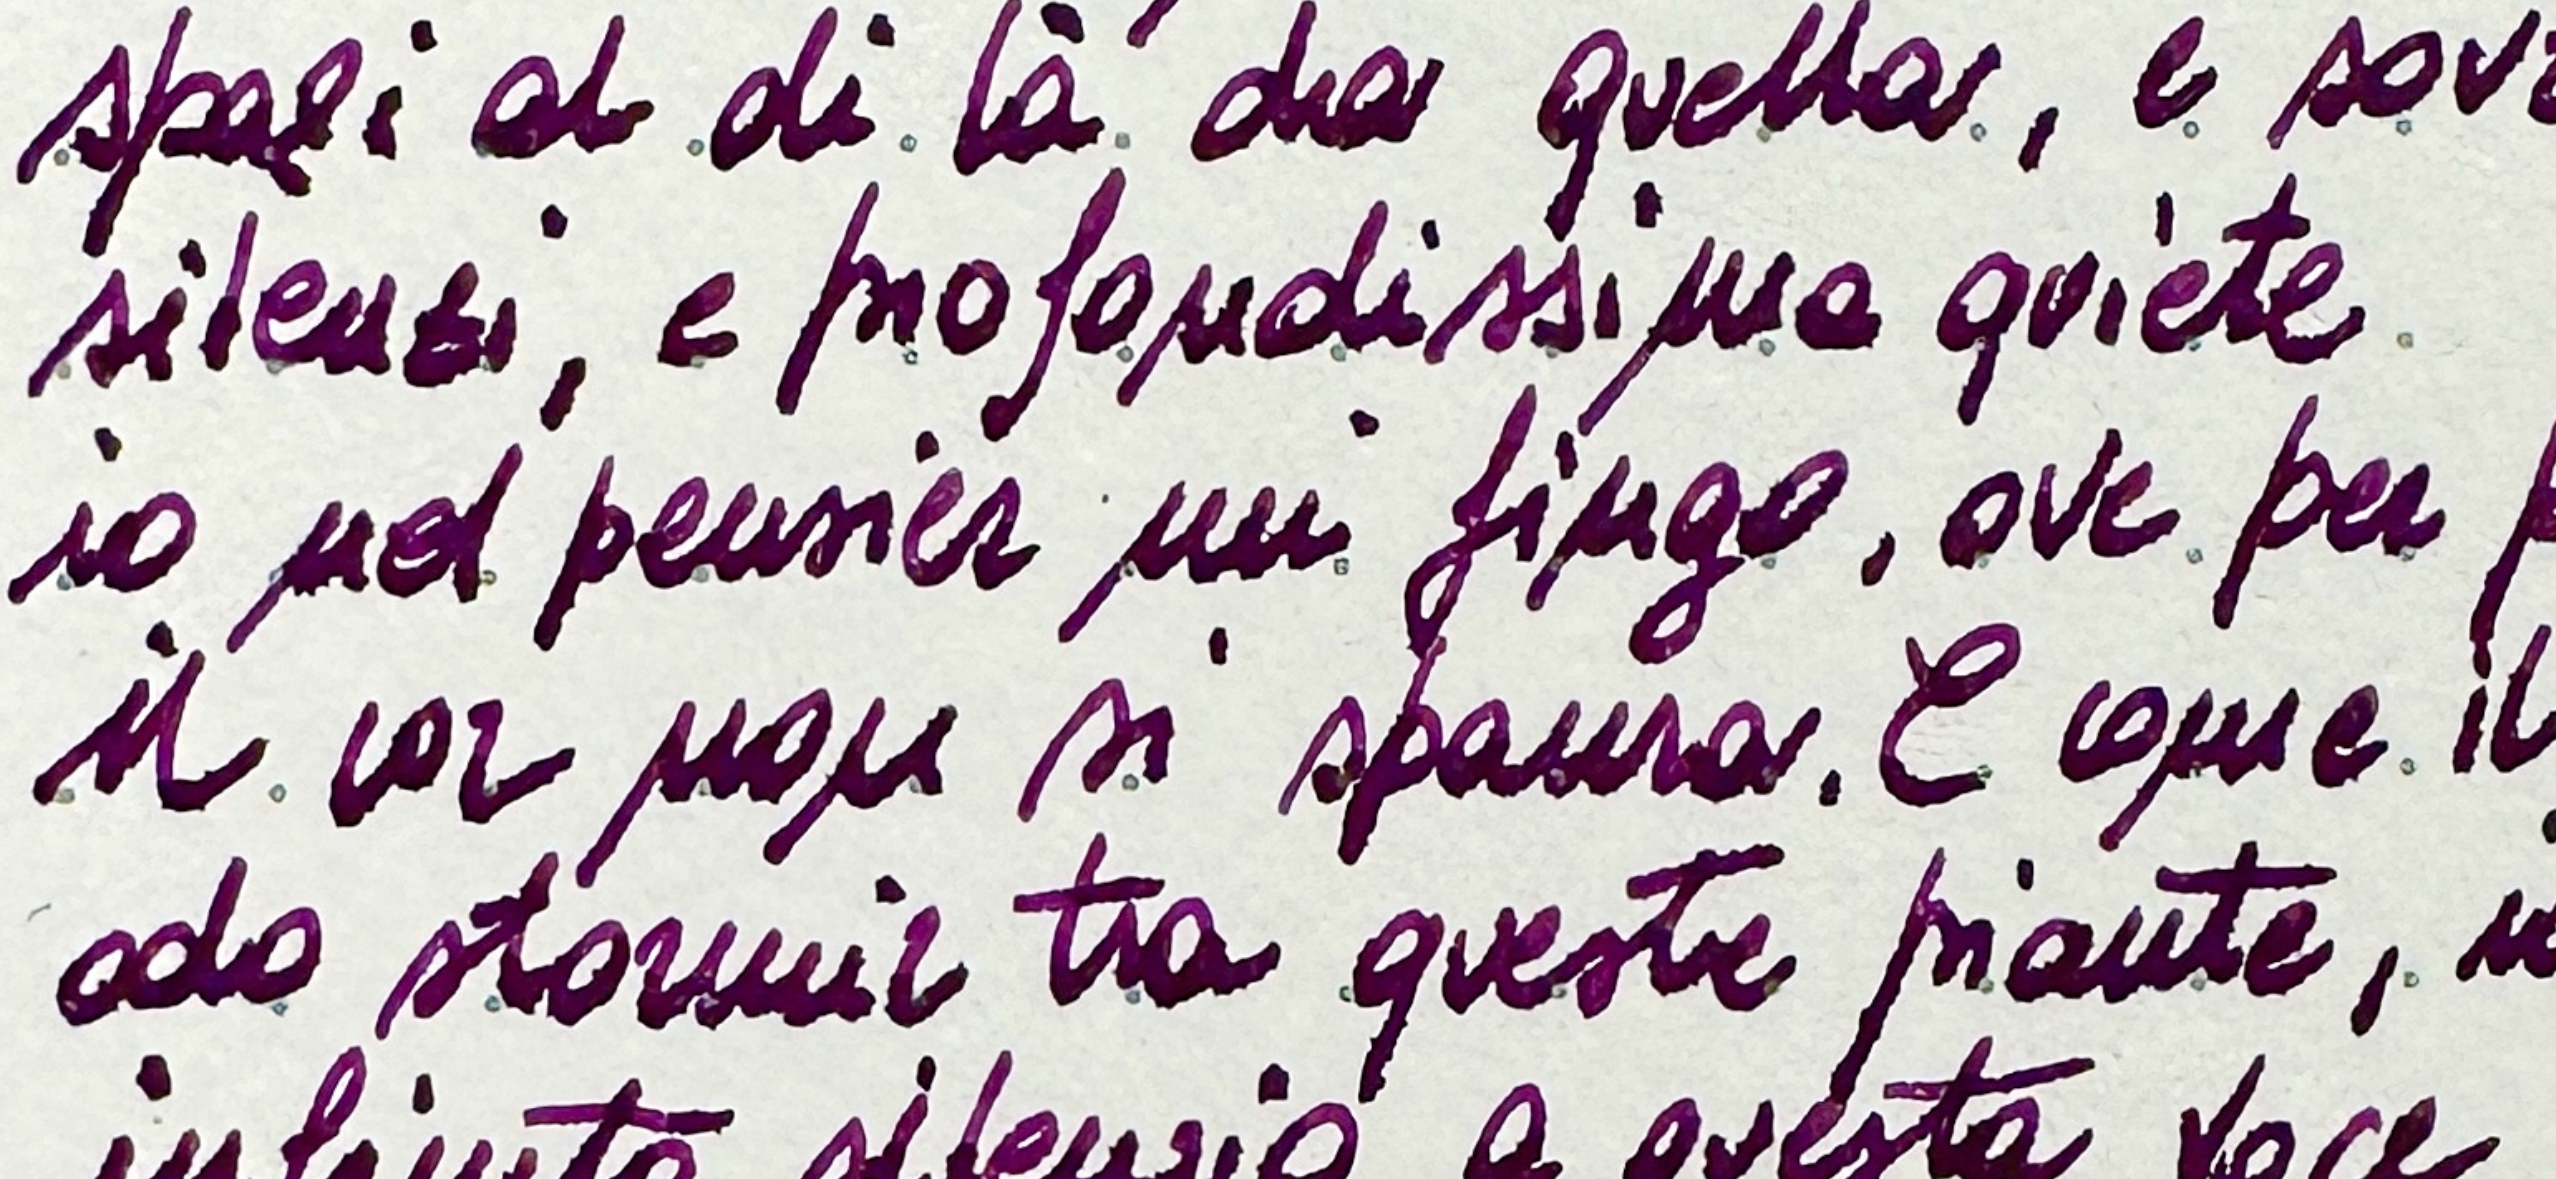 spazi al di là da quella, e sov
silenzi, e profondissima quiete
io nel pensier mi fingo, ove per p
il cor non si spaura. E come il
odo stormir tra queste piante, 
infinito silenzio a questa voce